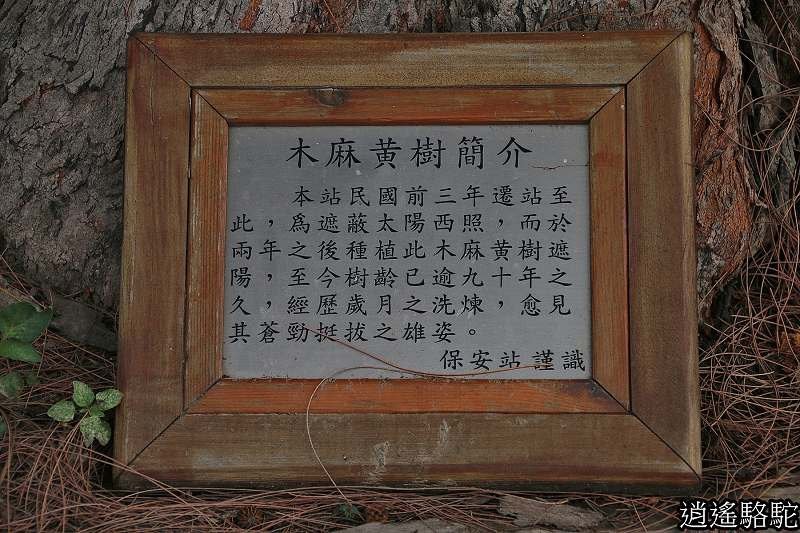 木麻黃樹簡介
本站民國前三年遷站至
此，為遮蔽太陽西照，而於
兩年之後種植此木麻黃樹遮
陽，至今樹齡已逾九十年之
久，經歷歲月之洗煉，愈見
其蒼勁挺拔之雄姿。
保安站謹識
逍遙駱駝